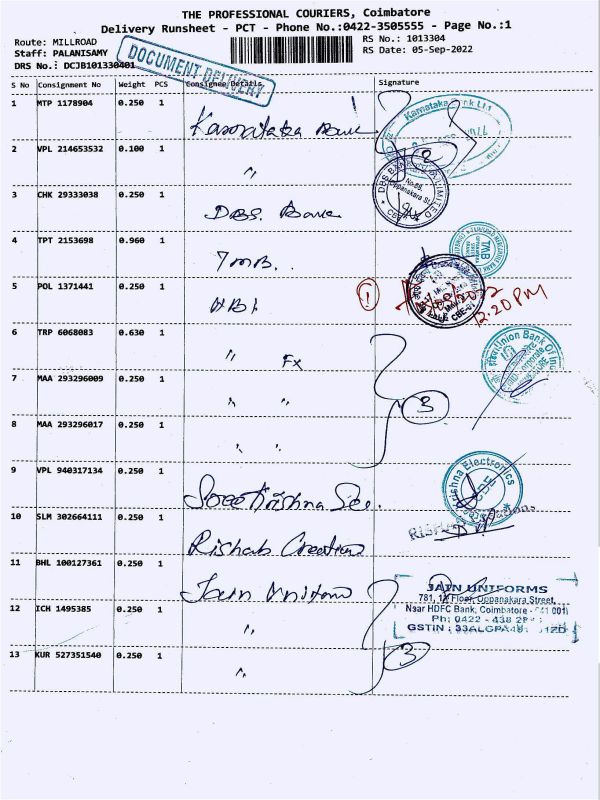 THE PROFESSIONAL COURIERS, Coimbatore
Delivery Runsheet - PCT - Phone No.:0422-3505555 - Page No.:1
Route: MILLROAD
RS No.: 1013304
Staff: PALANISAMY
RS Date: 05-Sep-2022
DRS No.: DCJB101330401
DOCUMENT DELIVERY
S No Consignment No Weight PCS Consignee Details Signature
1 MTP 1178904 0.250 1
Karnataka Bank
Karnataka Bank Ltd
2 VPL 214653532 0.100 1 "
2
DBS BANK LIMITED
Oppanakara St.
3 CHK 29333038 0.250 1
DBS. Bank
4 TPT 2153698 0.960 1
TMB.
TMB
5 POL 1371441 0.250 1
UBI
1
12.20 PM
6 TRP 6068083 0.630 1
" Fx
Union Bank Of
7 MAA 293296009 0.250 1
" "
3
8 MAA 293296017 0.250 1
" "
9 VPL 940317134 0.250 1
Sree Krishna Ele.
Krishna Electronics
CBE
10 SLM 302664111 0.250 1
Rishab Creation
11 BHL 100127361 0.250 1
Jain Uniform
JAIN UNIFORMS
781, 1st Floor, Oppanakara Street,
Naar HDFC Bank, Coimbatore - 641 001
Ph: 0422 - 438
GSTIN : 33ALGPA
12 ICH 1495385 0.250 1
"
13 KUR 527351540 0.250 1
"
3